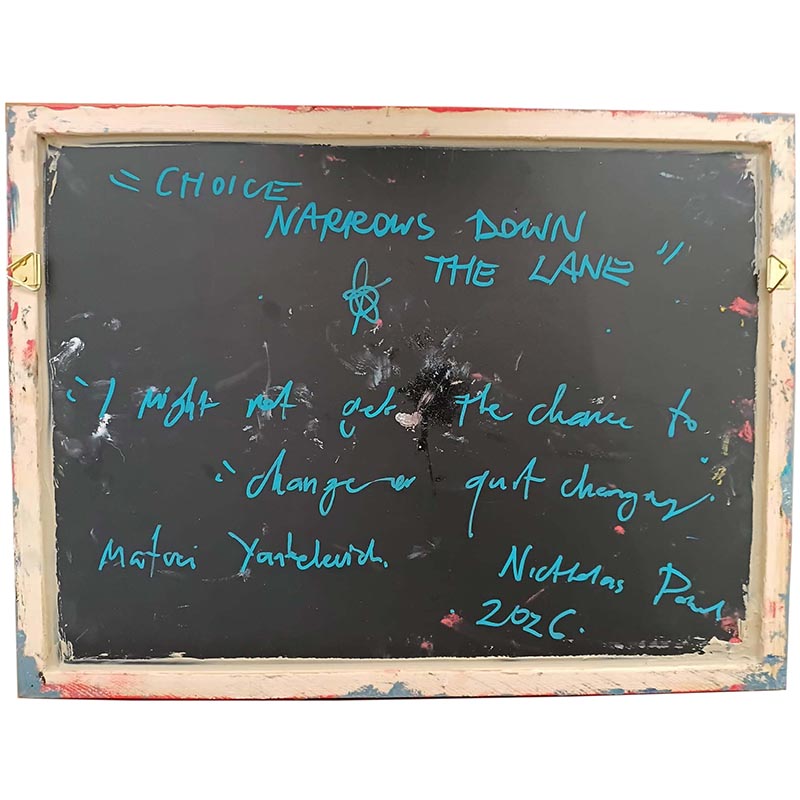 "CHOICE
NARROWS DOWN
THE LANE"
"I might not get the chance to
"change or quit changing."
Matvei Yankelevich.
Nicholas
2026.